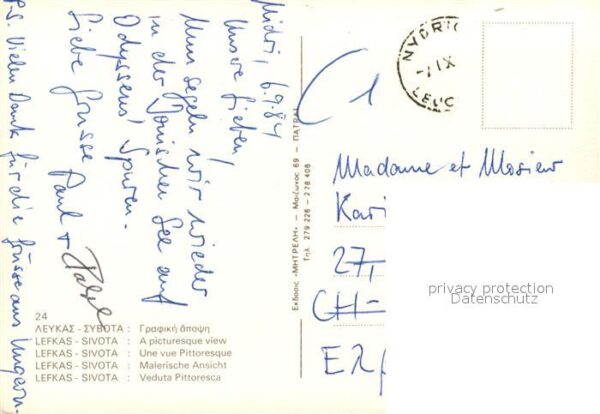 Nidri, 6.9.84
Unsre Lieben,
Nun segeln wir wieder
in der Ionischen See auf
Odysseus' Spuren.
Liebe Grüsse Paul +
P.S. Vielen Dank für die Grüsse aus Ungarn.
24
ΛΕΥΚΑΣ - ΣΥΒΟΤΑ : Γραφική άποψη
LEFKAS - SIVOTA : A picturesque view
LEFKAS - SIVOTA : Une vue Pittoresque
LEFKAS - SIVOTA : Malerische Ansicht
LEFKAS - SIVOTA : Veduta Pittoresca
Εκδοσις «ΜΗΤΡΕΛΗ» — Μαιζωνος 69 — ΠΑΤΡΑΙ
Τηλ. 279 226 - 278 406
NYDRI
LEUC
C1
Madame et Mosieur
Kari
27,
CH-
ERL
privacy protection
Datenschutz